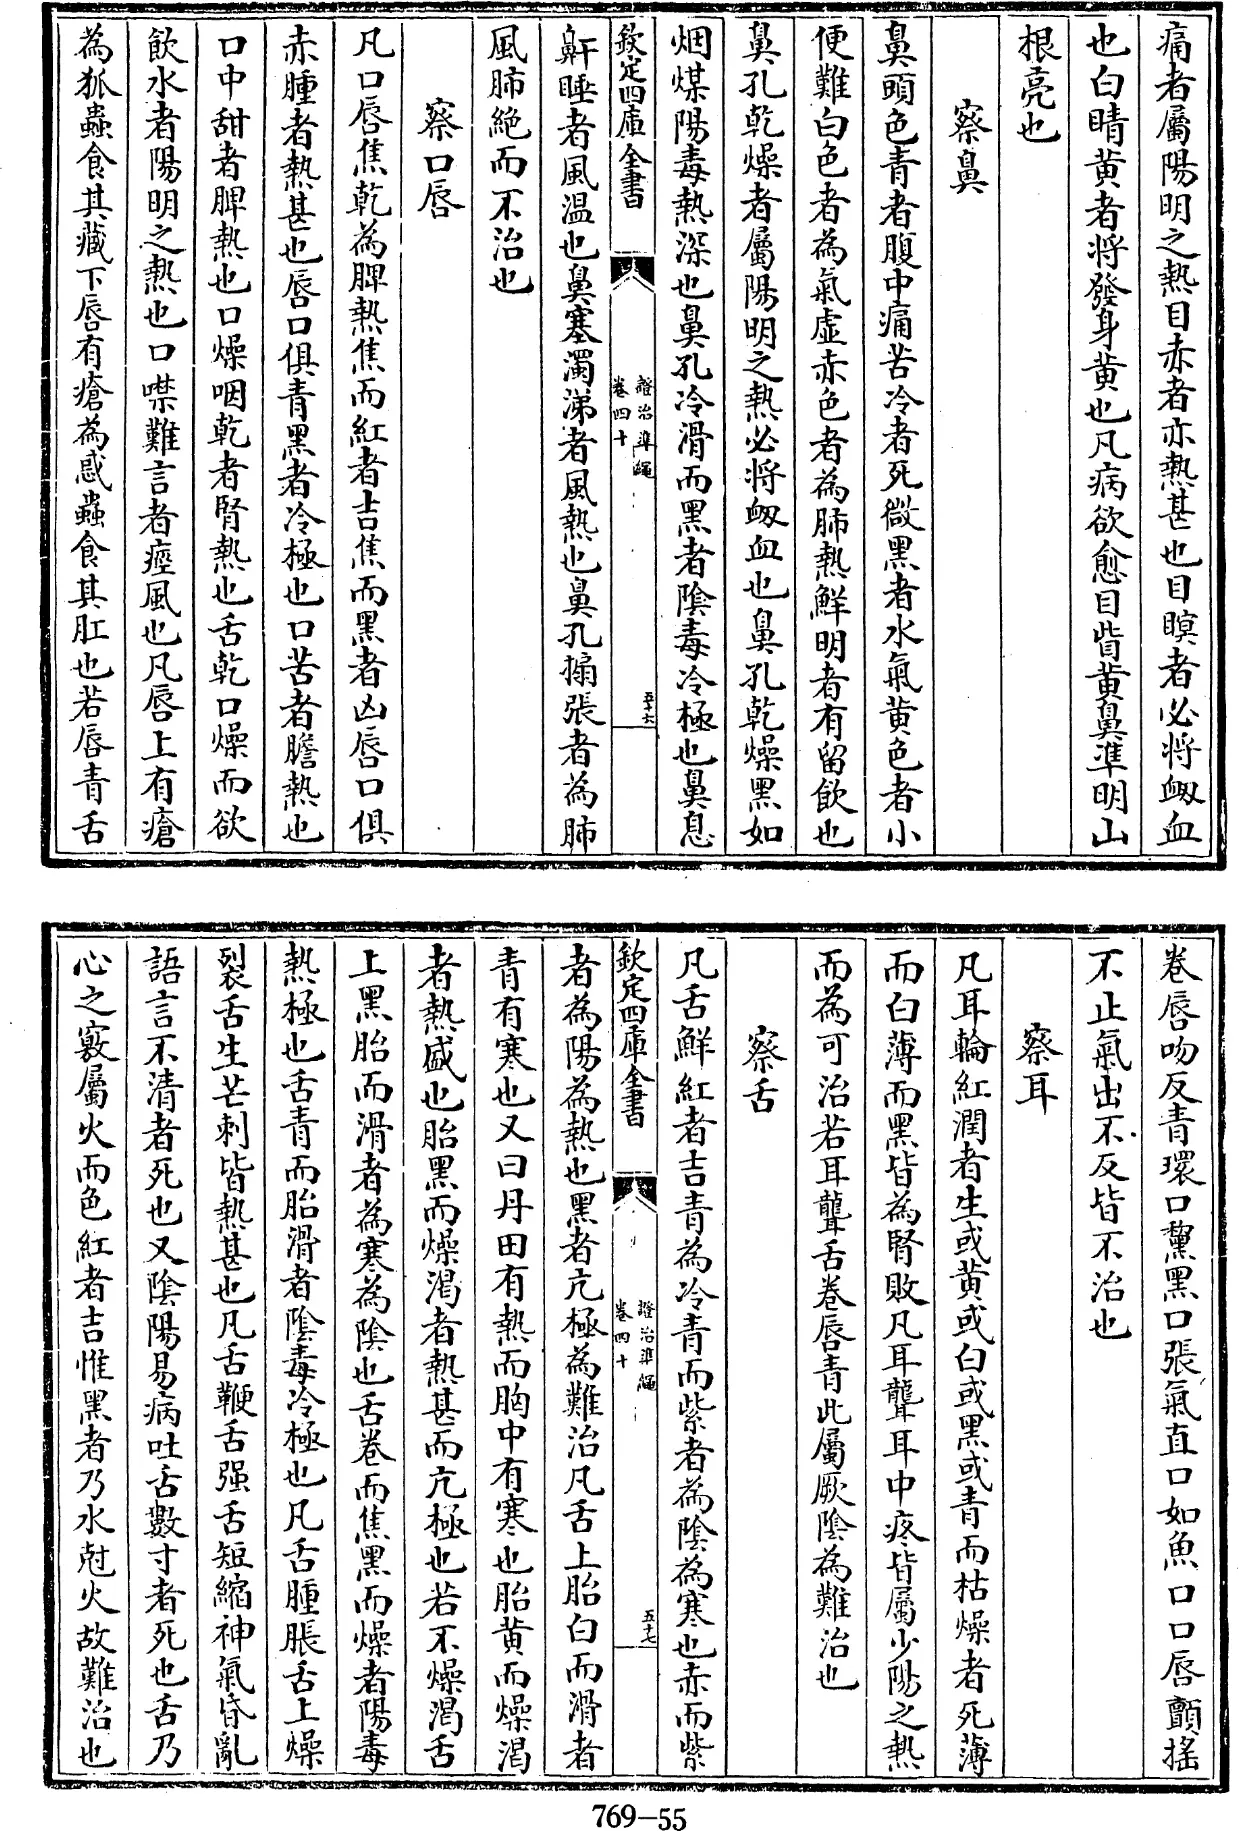 痛者屬陽明之熱目赤者亦熱甚也目瞑者必將衂血
也白睛黄者將發身黄也凡病欲愈目眥黄鼻準明山
根亮也
察鼻
鼻頭色青者腹中痛苦冷者死微黑者水氣黄色者小
便難白色者為氣虛赤色者為肺熱鮮明者有留飲也
鼻孔乾燥者屬陽明之熱必將衂血也鼻孔乾燥黑如
烟煤陽毒熱深也鼻孔冷滑而黑者陰毒冷極也鼻息
欽定四庫全書
證治準繩
卷四十
五十六
鼾睡者風温也鼻塞濁涕者風熱也鼻孔搧張者為肺
風肺絶而不治也
察口唇
凡口唇焦乾為脾熱焦而紅者吉焦而黑者凶唇口俱
赤腫者熱甚也唇口俱青黑者冷極也口苦者膽熱也
口中甜者脾熱也口燥咽乾者腎熱也舌乾口燥而欲
飲水者陽明之熱也口噤難言者痙風也凡唇上有瘡
為狐蟲食其藏下唇有瘡為惑蟲食其肛也若唇青舌
卷唇吻反青環口黧黑口張氣直口如魚口口唇顫摇
不止氣出不反皆不治也
察耳
凡耳輪紅潤者生或黄或白或黑或青而枯燥者死薄
而白薄而黑皆為腎敗凡耳聾耳中疼皆屬少陽之熱
而為可治若耳聾舌卷唇青此屬厥陰為難治也
察舌
凡舌鮮紅者吉青為冷青而紫者為陰為寒也赤而紫
欽定四庫全書
證治準繩
卷四十
五十七
者為陽為熱也黑者亢極為難治凡舌上胎白而滑者
青有寒也又曰丹田有熱而胸中有寒也胎黄而燥渴
者熱盛也胎黑而燥渴者熱甚而亢極也若不燥渴舌
上黑胎而滑者為寒為陰也舌卷而焦黑而燥者陽毒
熱極也舌青而胎滑者陰毒冷極也凡舌腫脹舌上燥
裂舌生芒刺皆熱甚也凡舌鞕舌强舌短縮神氣昏亂
語言不清者死也又陰陽易病吐舌數寸者死也舌乃
心之竅屬火而色紅者吉惟黑者乃水尅火故難治也
769-55